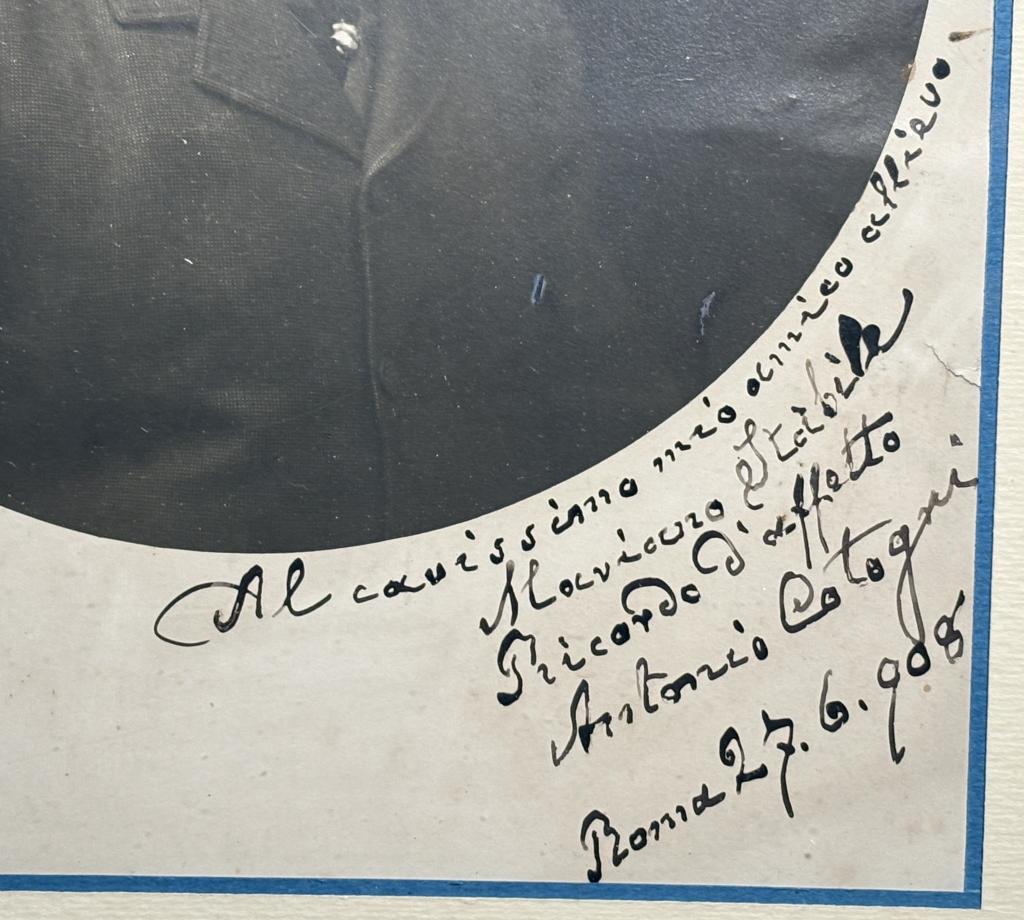 Al carissimo mio amico allievo
Mariano Stabile
Ricordo d'affetto
Antonio Cotogni
Roma 27.6.908